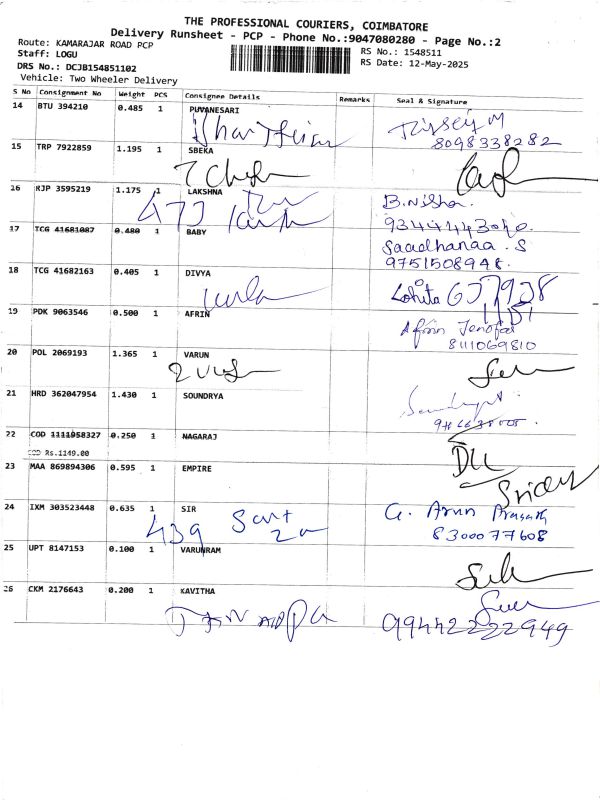 THE PROFESSIONAL COURIERS, COIMBATORE
Delivery Runsheet - PCP - Phone No.:9047080280 - Page No.:2
Route: KAMARAJAR ROAD PCP
RS No.: 1548511
Staff: LOGU
RS Date: 12-May-2025
DRS No.: DCJB154851102
Vehicle: Two Wheeler Delivery
S No Consignment No Weight PCS Consignee Details Remarks Seal & Signature
14 BTU 394210 0.485 1 PUVANESARI
8098338282
15 TRP 7922859 1.195 1 SBEKA
16 RJP 3595219 1.175 1 LAKSHNA
B.Nisha.
17 TCG 41681087 0.480 1 BABY
Saadhanaa . S
9751508948.
18 TCG 41682163 0.405 1 DIVYA
Lohita G
19 PDK 9063546 0.500 1 AFRIN
Afrin
8111069810
20 POL 2069193 1.365 1 VARUN
21 HRD 362047954 1.430 1 SOUNDRYA
22 COD 1111958327 0.250 1 NAGARAJ
COD Rs.1149.00
23 MAA 869894306 0.595 1 EMPIRE
24 IXM 303523448 0.635 1 SIR
G. Arun Prasath
439
8300077608
25 UPT 8147153 0.100 1 VARUNRAM
26 CKM 2176643 0.200 1 KAVITHA